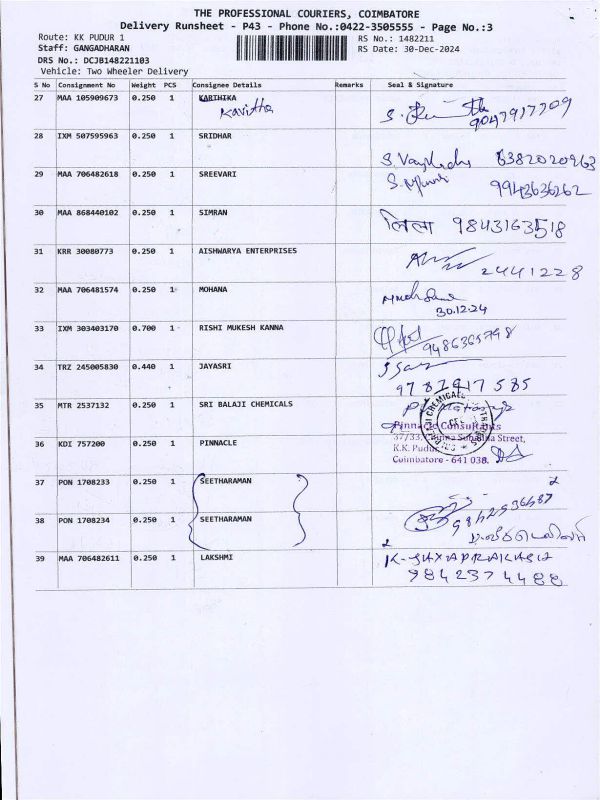 THE PROFESSIONAL COURIERS, COIMBATORE
Delivery Runsheet - P43 - Phone No.:0422-3505555 - Page No.:3
Route: KK PUDUR 1
RS No.: 1482211
Staff: GANGADHARAN
RS Date: 30-Dec-2024
DRS No.: DCJB148221103
Vehicle: Two Wheeler Delivery
S No Consignment No Weight PCS Consignee Details Remarks Seal & Signature
27 MAA 105909673 0.250 1 KARTHIKA
Kavitha
9047917709
28 IXM 507595963 0.250 1 SRIDHAR
6382020963
29 MAA 706482618 0.250 1 SREEVARI
9943636262
30 MAA 868440102 0.250 1 SIMRAN
9843163518
31 KRR 30080773 0.250 1 AISHWARYA ENTERPRISES
2441228
32 MAA 706481574 0.250 1 MOHANA
30.12.24
33 IXM 303403170 0.700 1 RISHI MUKESH KANNA
9486365798
34 TRZ 245005830 0.440 1 JAYASRI
9787917585
35 MTR 2537132 0.250 1 SRI BALAJI CHEMICALS
Pinnacle Consultants
37/33, Street,
36 KDI 757200 0.250 1 PINNACLE
K.K. Pudur
Coimbatore - 641 038.
37 PON 1708233 0.250 1 SEETHARAMAN
38 PON 1708234 0.250 1 SEETHARAMAN
39 MAA 706482611 0.250 1 LAKSHMI
K-JAYAPRAKASH
9842374488